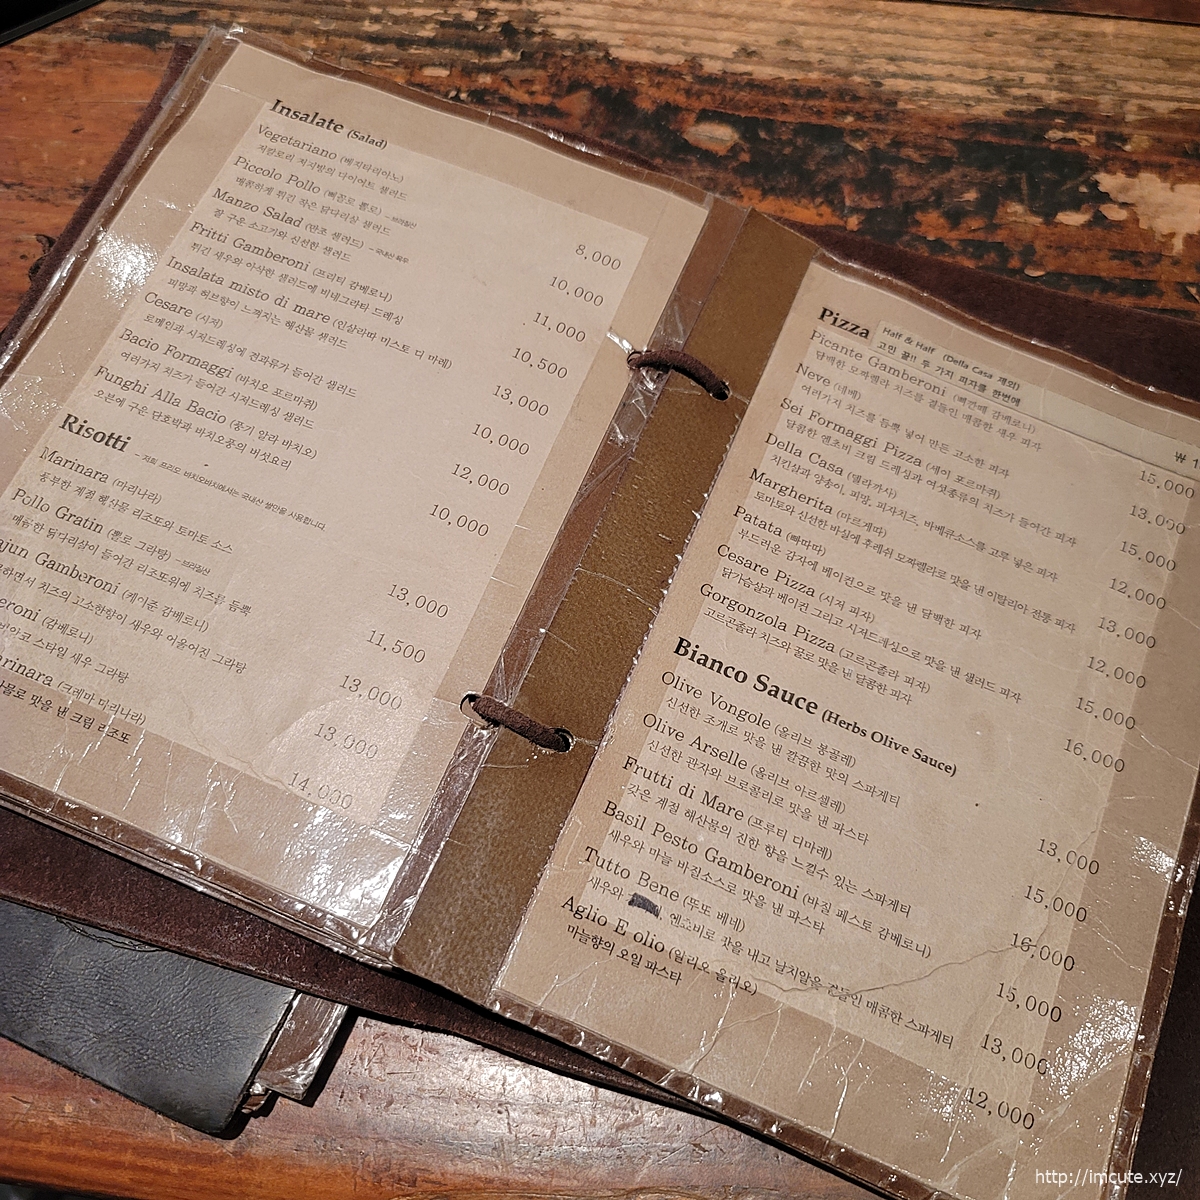 Insalate (Salad)
Vegetariano (베지타리아노)
저칼로리 저지방의 다이어트 샐러드
8,000
Piccolo Pollo (삐꼴로 뽈로) - 브라질산
매콤하게 튀긴 작은 닭다리살 샐러드
10,000
Manzo Salad (만조 샐러드) - 국내산 육우
잘 구운 소고기와 신선한 샐러드
11,000
Fritti Gamberoni (프리티 감베로니)
튀긴 새우와 아삭한 샐러드에 비네그라티 드레싱
10,500
Insalata misto di mare (인살라따 미스토 디 마레)
피망과 허브향이 느껴지는 해산물 샐러드
13,000
Cesare (시저)
로메인과 시저드레싱에 견과류가 들어간 샐러드
10,000
Bacio Formaggi (바치오 포르마쥐)
여러가지 치즈가 들어간 시저드레싱 샐러드
12,000
Funghi Alla Bacio (풍기 알라 바치오)
오븐에 구운 단호박과 바치오풍의 버섯요리
10,000
Risotti - 저희 프리모 바치오바치에서는 국내산 쌀만을 사용합니다.
Marinara (마리나라)
풍부한 계절 해산물 리조또와 토마토 소스
13,000
Pollo Gratin (뽈로 그라탕) - 브라질산
매콤한 닭다리살이 들어간 리조또위에 치즈를 듬뿍
11,500
ajun Gamberoni (케이준 감베로니)
하면서 치즈의 고소한향이 새우와 어울어진 그라탕
13,000
eroni (감베로니)
스타일 새우 그라탕
13,000
arinara (크레마 마리나라)
맛을 낸 크림 리조또
14,000
Pizza
Half & Half (Della Casa 제외)
고민 끝!! 두 가지 피자를 한번에
₩ 1
Picante Gamberoni (삐깐떼 감베로니)
담백한 모짜렐라 치즈를 곁들인 매콤한 새우 피자
15,000
Neve (네베)
여러가지 치즈를 듬뿍 넣어 만든 고소한 피자
13,000
Sei Formaggi Pizza (세이 포르마쥐)
달콤한 엔초비 크림 드레싱과 여섯종류의 치즈가 들어간 피자
15,000
Della Casa (델라까사)
치킨살과 양송이, 피망, 피자치즈, 바베큐소스를 고루 넣은 피자
12,000
Margherita (마르게따)
토마토와 신선한 바실에 후레쉬 모짜렐라로 맛을 낸 이탈리아 전통 피자
13,000
Patata (빠따따)
부드러운 감자에 베이컨으로 맛을 낸 담백한 피자
12,000
Cesare Pizza (시저 피자)
닭가슴살과 베이컨 그리고 시저드레싱으로 맛을 낸 샐러드 피자
15,000
Gorgonzola Pizza (고르곤졸라 피자)
고르곤졸라 치즈와 꿀로 맛을 낸 달콤한 피자
16,000
Bianco Sauce (Herbs Olive Sauce)
Olive Vongole (올리브 봉골레)
신선한 조개로 맛을 낸 깔끔한 맛의 스파게티
13,000
Olive Arselle (올리브 아르셀레)
신선한 관자와 브로콜리로 맛을 낸 파스타
15,000
Frutti di Mare (프루티 디마레)
갖은 계절 해산물의 진한 향을 느낄수 있는 스파게티
16,000
Basil Pesto Gamberoni (바질 페스토 감베로니)
새우와 마늘 바질소스로 맛을 낸 파스타
15,000
Tutto Bene (뚜또 베네)
새우와 엔초비로 맛을 내고 날치알을 곁들인 매콤한 스파게티
13,000
Aglio E olio (알리오 올리오)
마늘향의 오일 파스타
12,000
http://imcute.xyz/